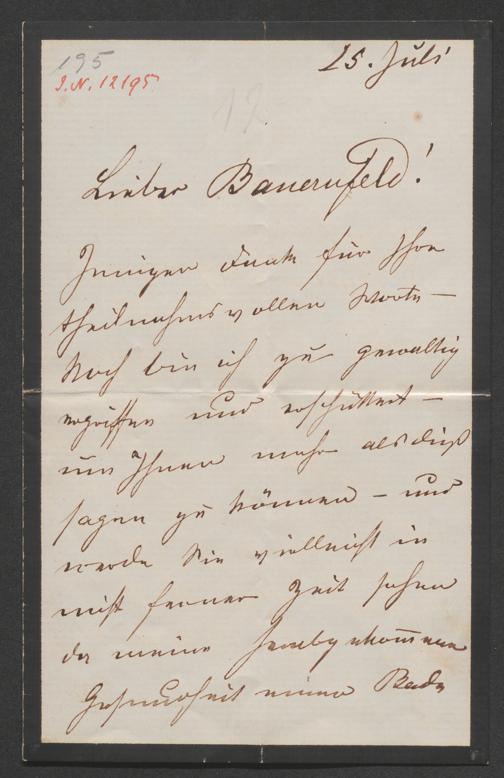 195
I.N. 12195
12
25. Juli
Lieber Bauernfeld!
Inniger Dank für Ihre
theilnahmsvollen Worte –
Noch bin ich zu gewaltig
ergriffen und erschüttert –
um Ihnen mehr als dieß
sagen zu können – und
werde Sie vielleicht in
nicht ferner Zeit sehen
da meine herabgekommene
Gesundheit einer Bade